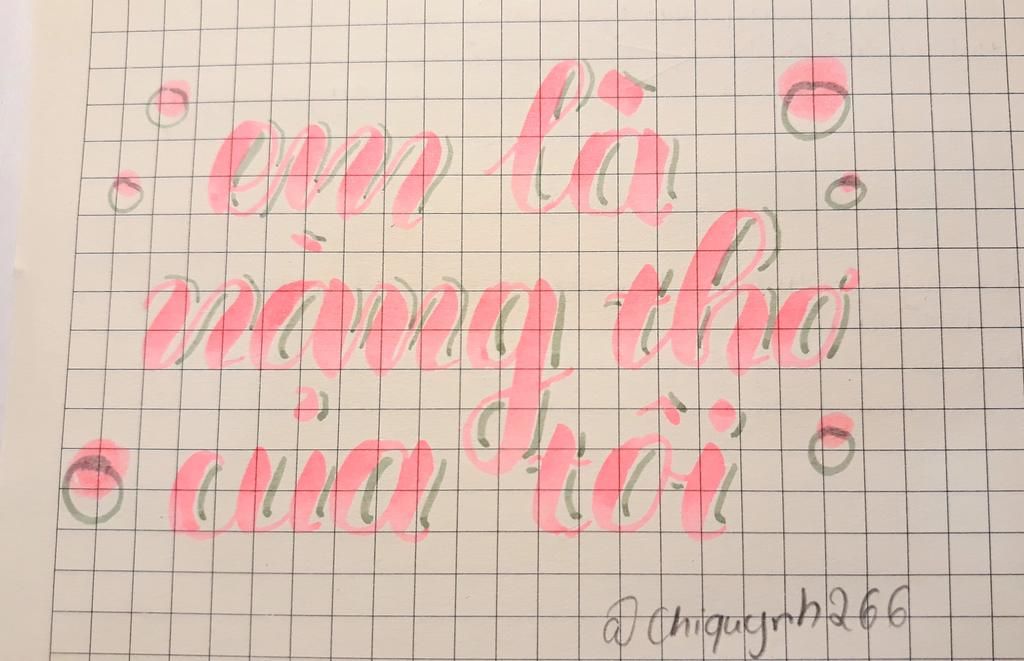 em là
nàng thơ
của tôi
@chiquynh266